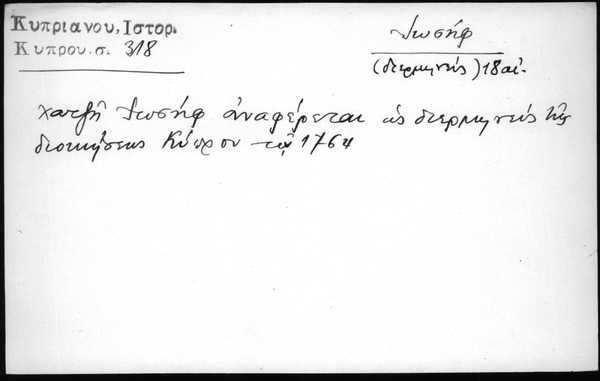 Κυπριανου, Ιστορ.
Κυπρου. σ. 318
Ἰωσήφ
(διερμηνεύς) 18 αἰ.
χατζῆ Ἰωσήφ ἀναφέρεται ὡς διερμηνεύς τῆς
διοικήσεως Κύπρου τῷ 1764